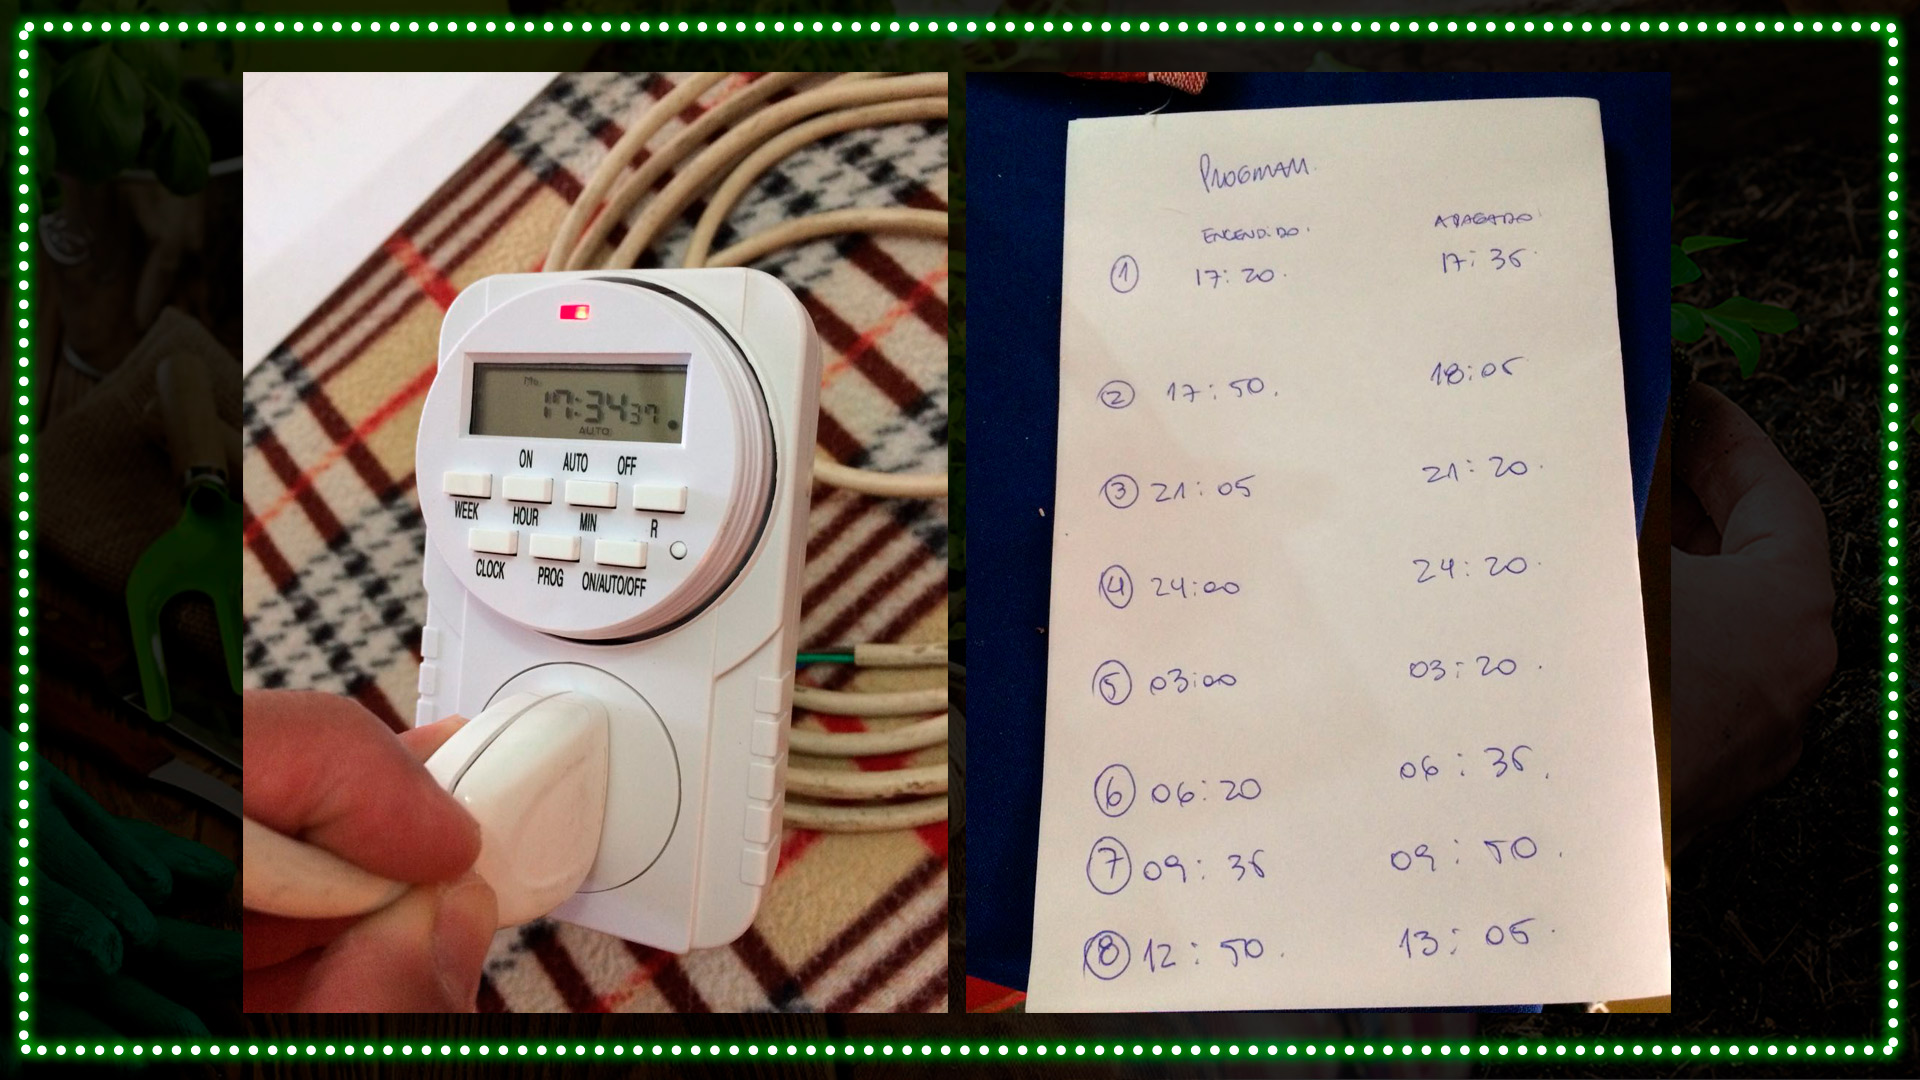 17:34 37
AUTO
ON AUTO OFF
WEEK HOUR MIN R
CLOCK PROG ON/AUTO/OFF
PROGRAM.
ENCENDIDO. APAGADO
1 17:20. 17:35
2 17:50. 18:05
3 21:05 21:20.
4 24:00 24:20.
5 03:00 03:20.
6 06:20 06:35.
7 09:35 09:50.
8 12:50. 13:05.